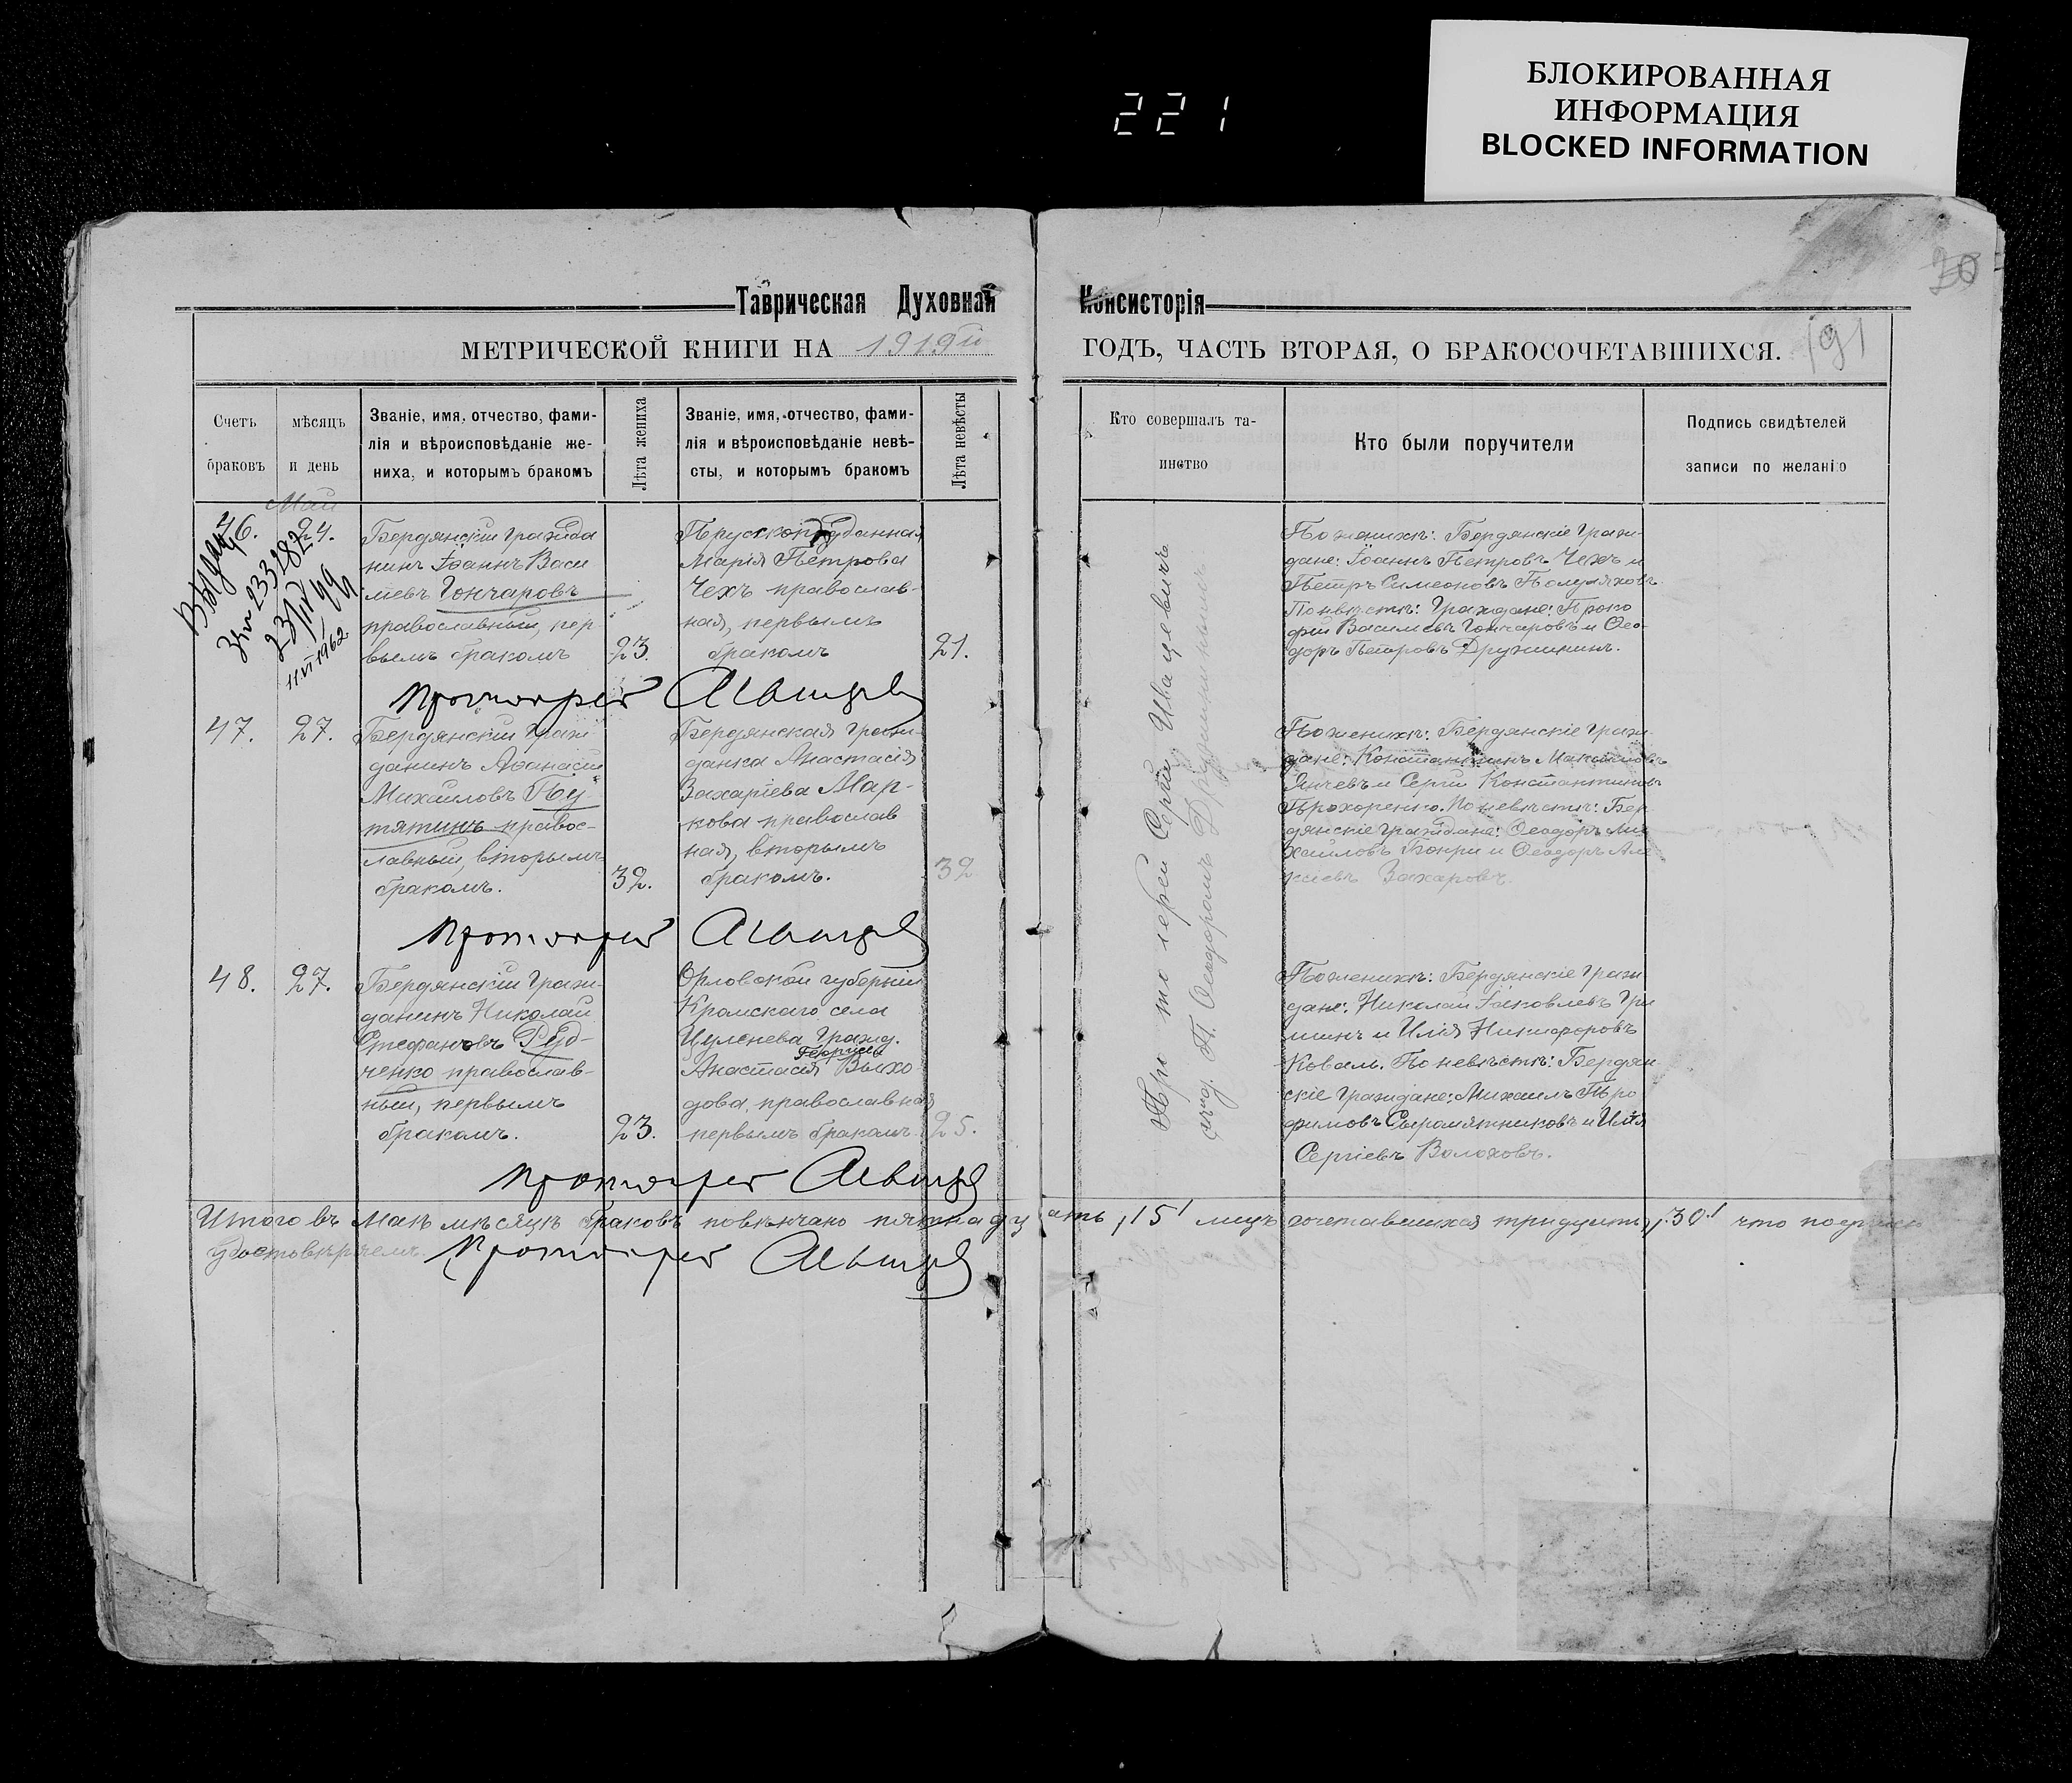 БЛОКИРОВАННАЯ
ИНФОРМАЦИЯ
BLOCKED INFORMATION
221
30
191
Таврическая Духовная Консисторія
МЕТРИЧЕСКОЙ КНИГИ НА 1919й ГОДЪ, ЧАСТЬ ВТОРАЯ, О БРАКОСОЧЕТАВШИХСЯ.
Счетъ
браковъ
мѣсяцъ
и день
Званіе, имя, отчество, фами-
лія и вѣроисповѣданіе же-
ниха, и которымъ бракомъ
Лѣта жениха
Званіе, имя, отчество, фами-
лія и вѣроисповѣданіе невѣ-
сты, и которымъ бракомъ
Лѣта невѣсты
Кто совершалъ та-
инство
Кто были поручители
Подпись свидѣтелей
записи по желанію
Май
46.
24.
11.VI 1962
Бердянскій гражда
нинъ Іоаннъ Васи
льевъ Гончаровъ
православный, пер
вымъ бракомъ
23.
Прусскоподданная
Марія Петрова
Чехъ православ-
ная, первымъ
бракомъ
21.
По женихѣ: Бердянскіе граж-
дане: Іоаннъ Петровъ Чехъ и
Петръ Симеоновъ Полуляховъ
По невѣстѣ: Граждане: Проко
фій Васильевъ Гончаровъ и Ѳео-
доръ Петровъ Дружининъ.
Протоіерей
47.
27.
Бердянскій граж
данинъ Аѳанасій
Михайловъ Пу
тятинъ правос-
лавный, вторымъ
бракомъ.
32.
Бердянская граж-
данка Анастасія
Захаріева Мар-
кова православ
ная, вторымъ
бракомъ.
32
По женихѣ: Бердянскіе граж-
дане: Константинъ
Янчевъ и Сергій Константиновъ
Прохоренко. По невѣстѣ: Бер-
дянскіе граждане: Ѳеодоръ Ми
хайловъ и Ѳеодоръ Але
ксіевъ Захаровъ.
Протоіерей
48.
27.
Бердянскій граж-
данинъ Николай
Стефановъ Руд-
ченко православ-
ный, первымъ
бракомъ.
23.
Орловской губерніи
Кромскаго села
гражд.
Георгіева
Анастасія Выхо
дова, православная
первымъ бракомъ.
25.
По женихѣ: Бердянскіе граж
дане: Николай Іаковлевъ Гри
шинъ и Илія Никифоровъ
Коваль. По невѣстѣ: Бердян
скіе граждане: Михаилъ Тро
фимовъ Сыромятниковъ и Илія
Сергіевъ Волоховъ.
Протоіерей
іерей Сергій Ивацевичъ
Ѳеодоромъ Дружининымъ
Итого въ Маѣ мѣсяцѣ браковъ повѣнчано пятнадцать, 15 лицъ сочетавшихся тридцать, 30, что подписью
удостовѣряемъ. Протоіерей